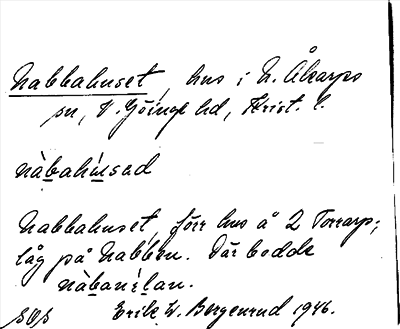 Nabbahuset, hus i N. Åkarps
sn, V. Göinge hd, Krist. l.
nàbahúsad
Nabbahuset, förr hus å 2 Torrarp;
låg på Nabben. Där bodde
nàbanílan.
Erik W. Bergenrud 1946.